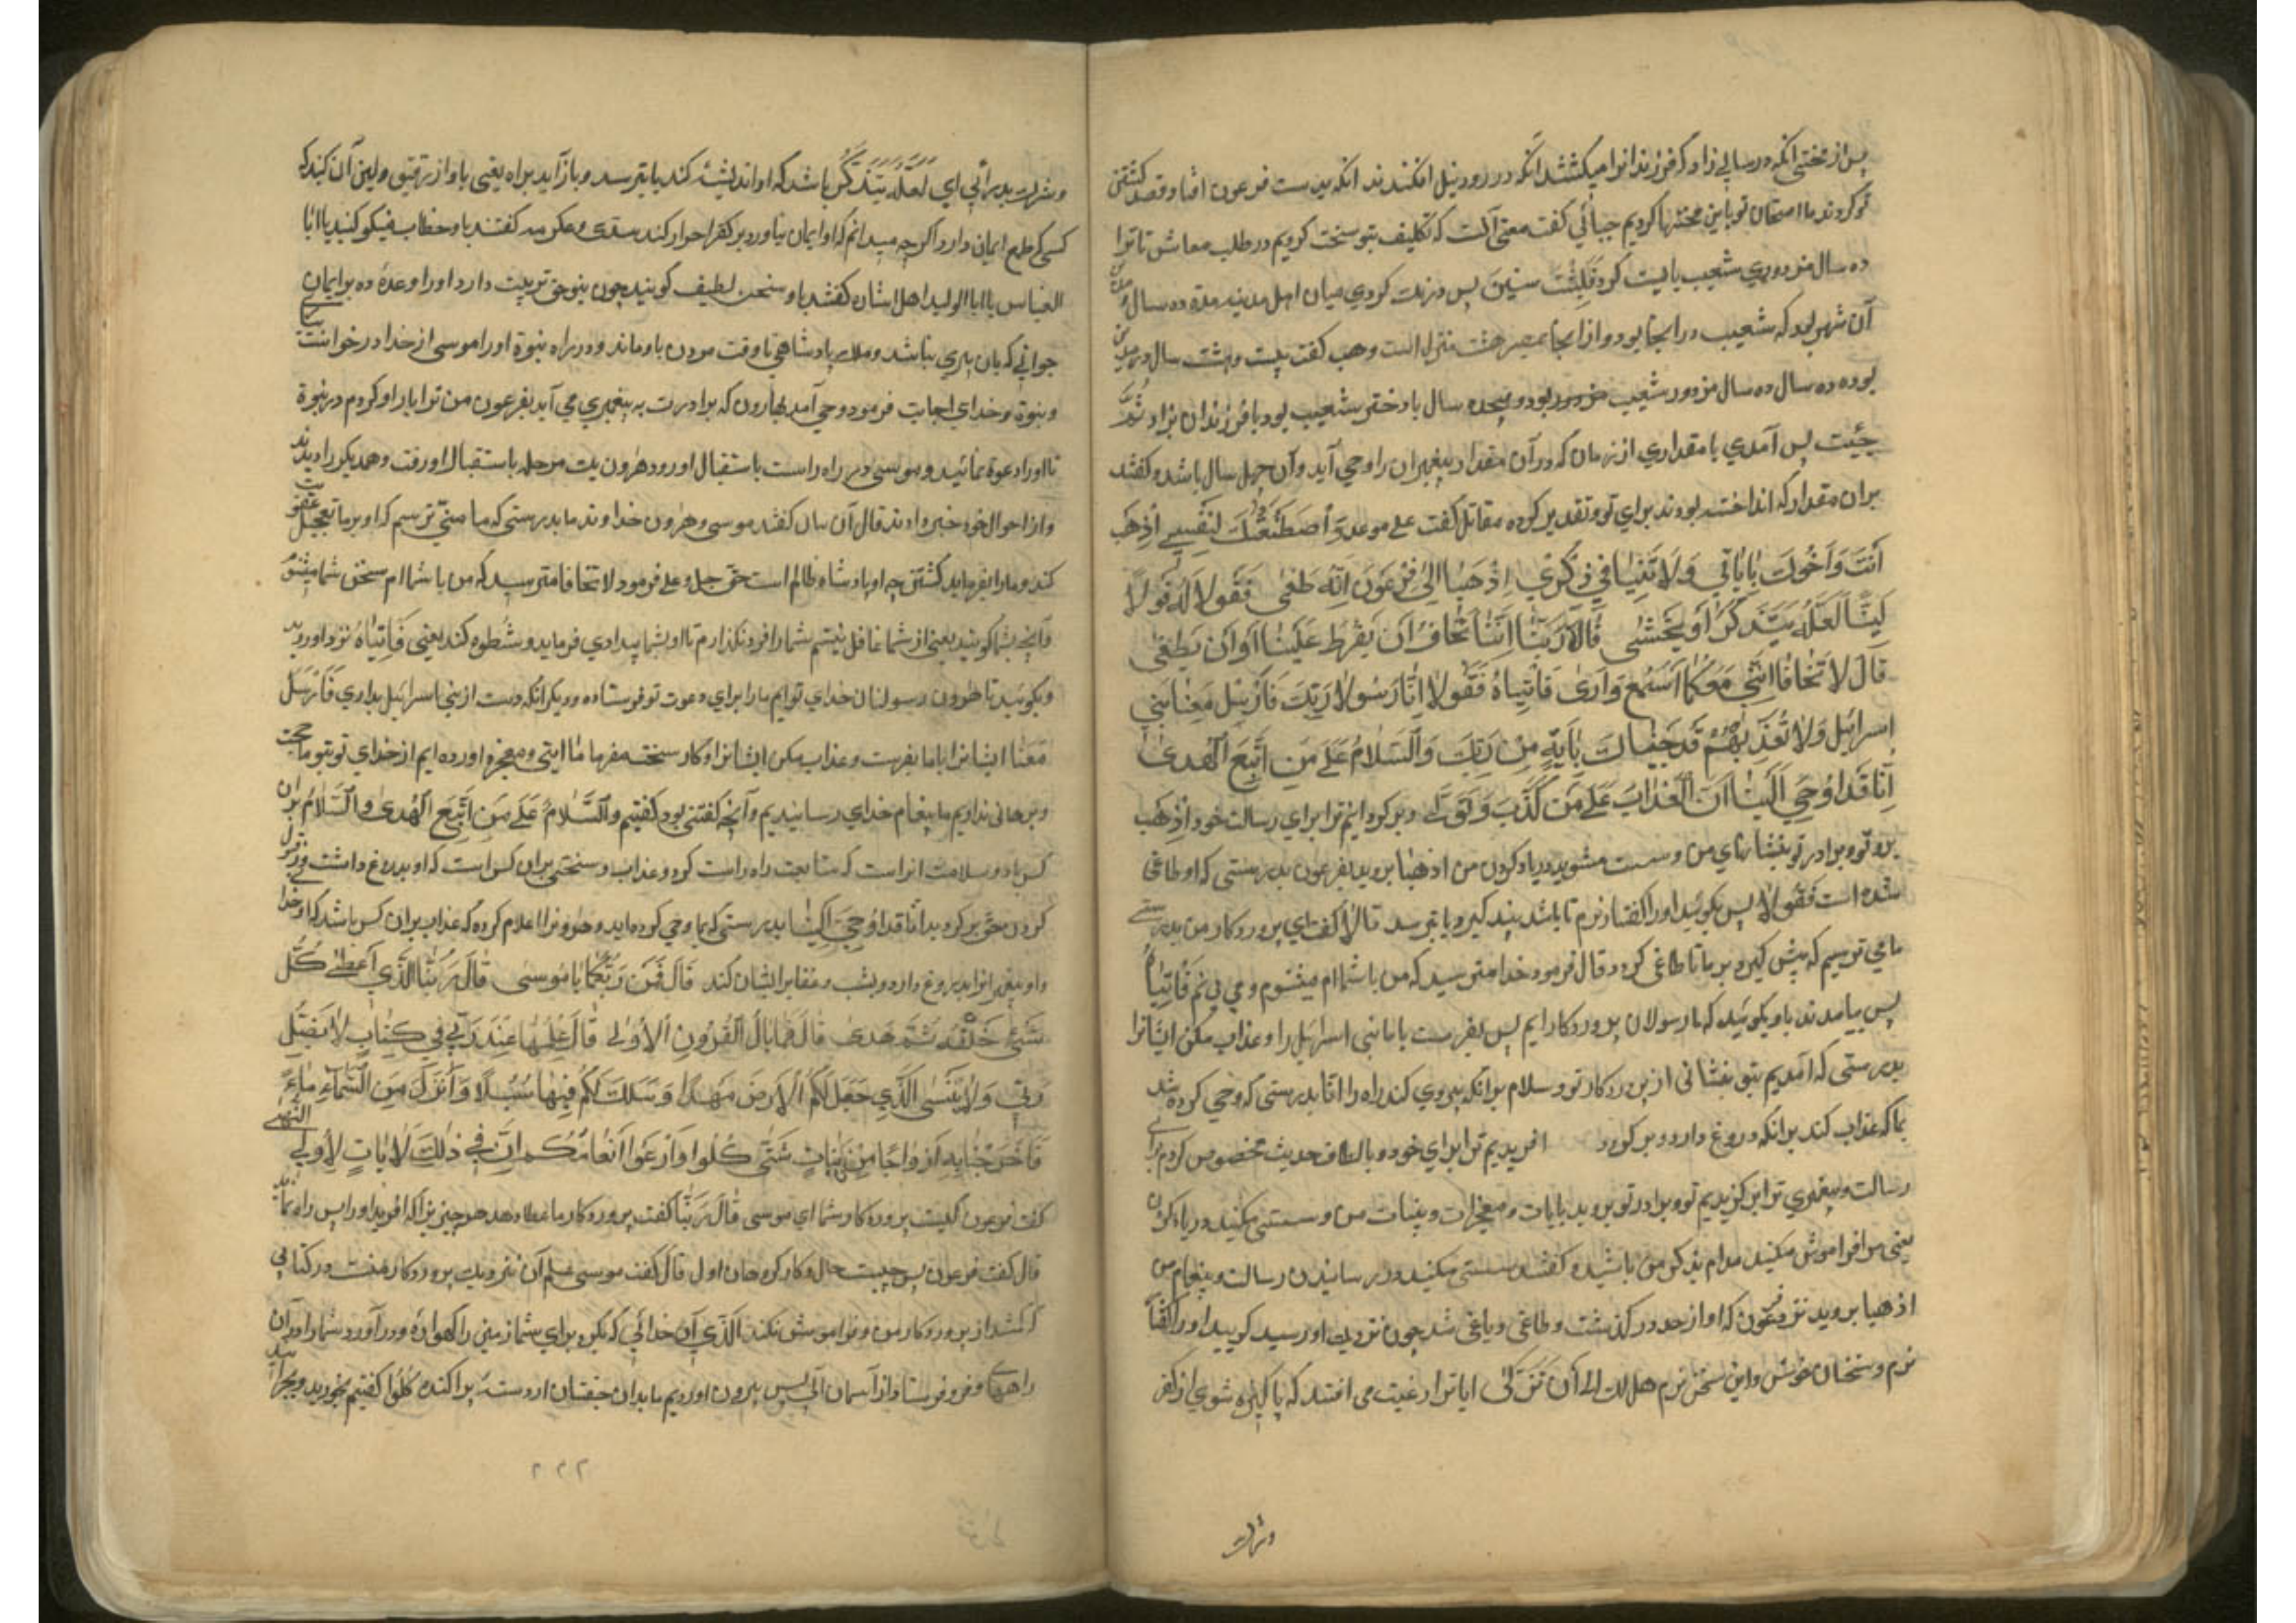 پس از محنتی انکه در سالی زاد که فرزندانرا میکشتند انکه در رود نیل افکندند انکه بدست فرعون افتاد و قصد کشتن
تو کردند ما امتحان تو باین محنتها کردیم جبائی کفت معنی آنست که تکلیف بتو سخت کردیم در طلب معاش تا ترا
ده سال مزدوری شعیب بایست کرد فَلَبِثْتَ سنین پس درنک کردی میان اهل مدین مدة ده سال و مدین
آن شهر بود که شعیب در انجا بود و از انجا بمصر هشت منزل است وهب کفت بیست و هشت سال در مدین
بوده ده سال مزدور شعیب بود و هیجده سال با دختر شعیب بود با فرزندان بزاد ثُمَّ
جِئْتَ پس آمدی با مقداری از زمان که در آن مقدار پیغمبران را وحی آید و آن چهل سال باشد و کفتند
بران مقدار که انداخته بودند برای تو و تقدیر کرده مقاتل کفت علی موعد وَاصْطَنَعْتُكَ لِنَفْسِي اِذْهَبْ
اَنْتَ وَاَخُوكَ بِاٰيَاتِي وَلَا تَنِيَا فِي ذِكْرِي اِذْهَبَا اِلىٰ فِرْعَوْنَ اِنَّهُ طَغىٰ فَقُولَا لَهُ قَوْلًا
لَيِّنًا لَعَلَّهُ يَتَذَكَّرُ اَوْ يَخْشىٰ قَالَا رَبَّنَا اِنَّنَا نَخَافُ اَنْ يَفْرُطَ عَلَيْنَا اَوْ اَنْ يَطْغىٰ
قَالَ لَا تَخَافَا اِنَّنِي مَعَكُمَا اَسْمَعُ وَاَرىٰ فَاْتِيَاهُ فَقُولَا اِنَّا رَسُولَا رَبِّكَ فَاَرْسِلْ مَعَنَا بَنِي
اِسْرَائِلَ وَلَا تُعَذِّبْهُمْ قَدْ جِئْنَاكَ بِاٰيَةٍ مِنْ رَبِّكَ وَالسَّلَامُ عَلىٰ مَنِ اتَّبَعَ الْهُدىٰ
اِنَّا قَدْ اُوحِيَ اِلَيْنَا اَنَّ الْعَذَابَ عَلىٰ مَنْ كَذَّبَ وَتَوَلّىٰ و برکزیدم ترا برای رسالت خود اِذْهَبْ
برو تو و برادر تو بنشانهای من و سست مشوید در یاد کردن من اذهبا بروید بفرعون بدرستی که او طاغی
شده است فَقُولَا پس بکوئید او را کفتار نرم تا باشد پند کیرد یا بترسد قالا کفتند ای پروردکار من بدرستی
ما می ترسیم که پیش کیرد بر ما تا طاغی کردد قال فرمود خدا مترسید که من با شماام میشنوم و می بینم فَاْتِيَا
پس بیامدند باو بکوئید که ما رسولان پروردکار ایم پس بفرست با ما بنی اسرائیل را و عذاب مکن ایشانرا
بدرستی که آمدیم بتو بنشانی از پروردکار تو و سلام برانکه پیروی کند راه را انا بدرستی که وحی کرده شد
بما که عذاب کند برانکه دروغ دارد و برکردد افریدیم ترا برای خود و بالطاف حدیث مخصوص کردم برای
رسالت و پیغمبری ترا برکزیدیم تو و برادر تو بروید بایات و معجزات و بینات من و سستی مکنید در یاد کردن
یعنی مرا فراموش مکنید مدام بذکر من باشید و کفتند سستی مکنید در رسانیدن رسالت و پیغام من
اذهبا بروید نزد فرعون که او از حد در کذشت و طاغی و یاغی شد چون نزدیک او رسید کویید او را کفتار
نرم و سخنان خوش و این سخن نرم هل لك الی اَنْ تَزَكّىٰ ایا ترا رغبت می افتد که پاکیزه شوی از کفر
وشرک
وشرک بدرائی ای لَعَلَّهُ يَتَذَكَّرُ باشد که او اندیشه کند یا بترسد و باز آید براه یعنی باواز ترقیق و لین آن کنید که
کسی که طمع ایمان دارد اکرچه میدانم که او ایمان نیاورد بر کفر اصرار کند سدی و عکرمه کفتند باو خطاب نیکو کنید یا ابا
العباس یا ابا الولید اهل اشارت کفتند باو سخن لطیف کویید چون بتو حق تربیت دارد او را وعدهٔ ده بر ایمان بیاری
جوانی که بان پیری نباشد و ملک پادشاهی تا وقت مردن باو ماند و در راه نبوة او را موسی از خدا درخواست
و نبوة و خدای اجابت فرمود وحی آمد بهارون که برادرت به پیغمبری می آید بفرعون من ترا یار او کردم در نبوة
تا او را دعوة نمائید و موسی در راه راست باستقبال او رود هرون یک مرحله باستقبال او رفت و همدیکر را دیدند
و از احوال خود خبر دادند قال آن سان کفتند موسی و هرون خداوند ما بدرستی که ما می ترسیم که او بر ما تعجیل عقوبت
کند و ما را بفرماید کشتن چه او پادشاه ظالم است حق جل و علی فرمود لا تخافا مترسید که من با شماام سخن شما میشنوم
و آنچه بشما کویند یعنی از شما غافل نیستم شما را فرو نکذارم تا او بشما بیدادی فرماید و سطوه کند یعنی فَاْتِيَاهُ نزد او روید
و بکوئید تا هرون رسولان خدای توایم ما را برای دعوت تو فرستاده و دیکر انکه دست از بنی اسرائیل بداری فَاَرْسِلْ
مَعَنَا ایشانرا با ما بفرست و عذاب مکن ایشانرا و کار سخت مفرما ما ایتی و معجزه اورده ایم از خدای تو بتو ما حجت
و برهانی نداریم ما پیغام خدای رسانیدیم و آنچه کفتنی بود کفتیم وَالسَّلَامُ عَلىٰ مَنِ اتَّبَعَ الْهُدىٰ والسلام بران
کس باد و سلامت انراست که متابعت راه راست کرد و عذاب و سختی بران کس است که او بدروغ داشت و از قبول
کردن حق برکردید انا قد اُوحِيَ اِلَيْنَا بدرستی که بما وحی کرده اید و ما را اعلام کرده که عذاب بران کس باشد که او خدا
و پیغمبرانرا بدروغ دارد و پشت و قفا بر ایشان کند قَالَ فَمَنْ رَبُّكُمَا يَا مُوسىٰ قَالَ رَبُّنَا الَّذِي اَعْطىٰ كُلَّ
شَيْءٍ خَلْقَهُ ثُمَّ هَدىٰ قَالَ فَمَا بَالُ الْقُرُونِ الْاُولىٰ قَالَ عِلْمُهَا عِنْدَ رَبِّي فِي كِتَابٍ لَا يَضِلُّ
رَبِّي وَلَا يَنْسَى الَّذِي جَعَلَ لَكُمُ الْاَرْضَ مَهْدًا وَسَلَكَ لَكُمْ فِيهَا سُبُلًا وَاَنْزَلَ مِنَ السَّمَاءِ مَاءً
فَاَخْرَجْنَا بِهِ اَزْوَاجًا مِنْ نَبَاتٍ شَتّىٰ كُلُوا وَارْعَوْا اَنْعَامَكُمْ اِنَّ فِي ذٰلِكَ لَاٰيَاتٍ لِاُولِي النُّهىٰ
کفت فرعون کیست پروردکار شما ای موسی قَالَ رَبُّنَا کفت پروردکار ما عطا دهد هر چیزی را که افرید او را پس راه نماید
قال کفت فرعون پس چیست حال و کار کروهان اول قال کفت موسی علم آن نزدیک پروردکار منست در کتابی
که کشد از پروردکار من و فراموش نکند الَّذِي آن خدائی که بکرد برای شما زمین را کهواره و درآورد شما را در آن
راهها و فرو فرستاد از آسمان آبی پس بیرون اوردیم ما بدان جفتان از رستنی پراکنده كُلُوا کفتیم بخورید و بچرانید
۲۲۲